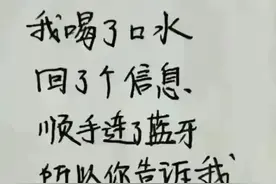 我喝了口水
回了个信息、
顺手连了蓝牙
所以你告诉我